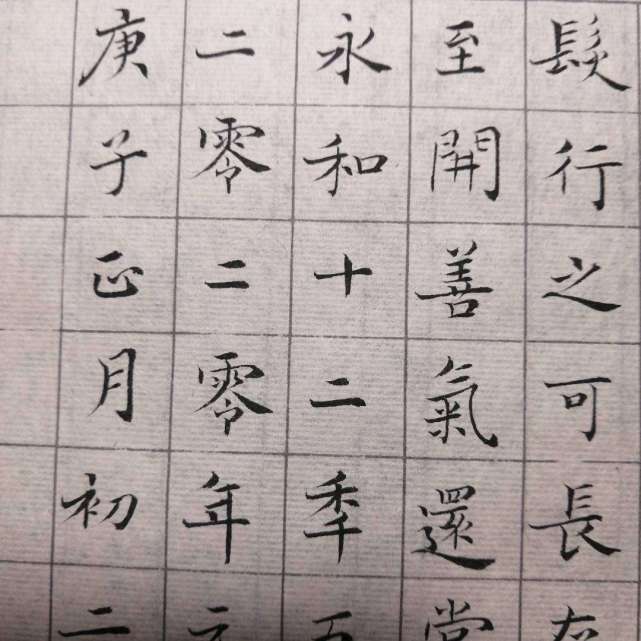 髮行之可長存
至開善氣還當
永和十二秊五
二零二零年元
庚子正月初二